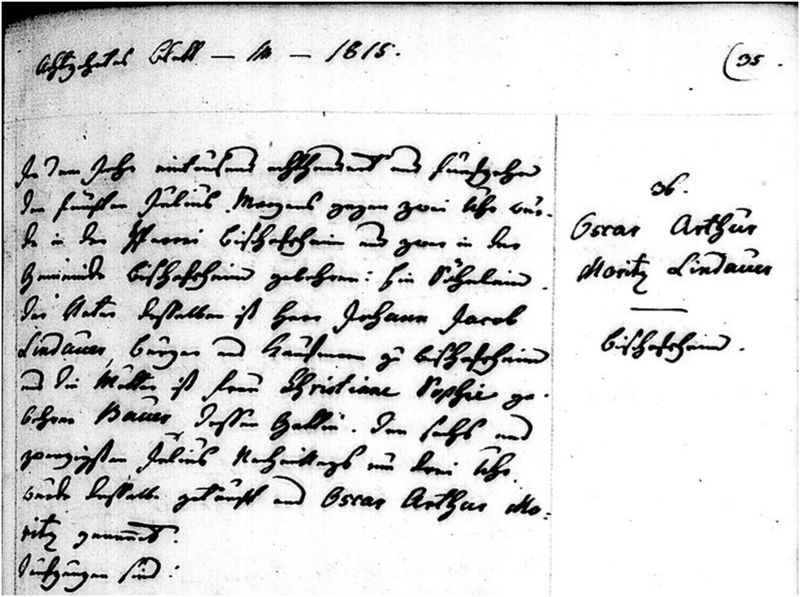 Achtzehntes Blatt — M — 1815.
(35.
In dem Jahr eintausend achthundert und fünfzehn
den fünften Julius Morgens gegen zwei Uhr wur-
de in der Pfarrei Bischofsheim und zwar in der
Gemeinde Bischofsheim gebohren: Ein Söhnlein.
Der Vater desselben ist Herr Johann Jacob
Lindauer, Bürger und Kaufmann zu Bischofsheim
und die Mutter ist Frau Christiane Sophie ge-
bohrne Bauer, dessen Gattin. Den sechs und
zwanzigsten Julius Nachmittags um drei Uhr
wurde desselbe getauft und Oscar Arthur Mo-
ritz genannt.
Taufzeugen sind:
36.
Oscar Arthur
Moritz Lindauer
Bischofsheim.